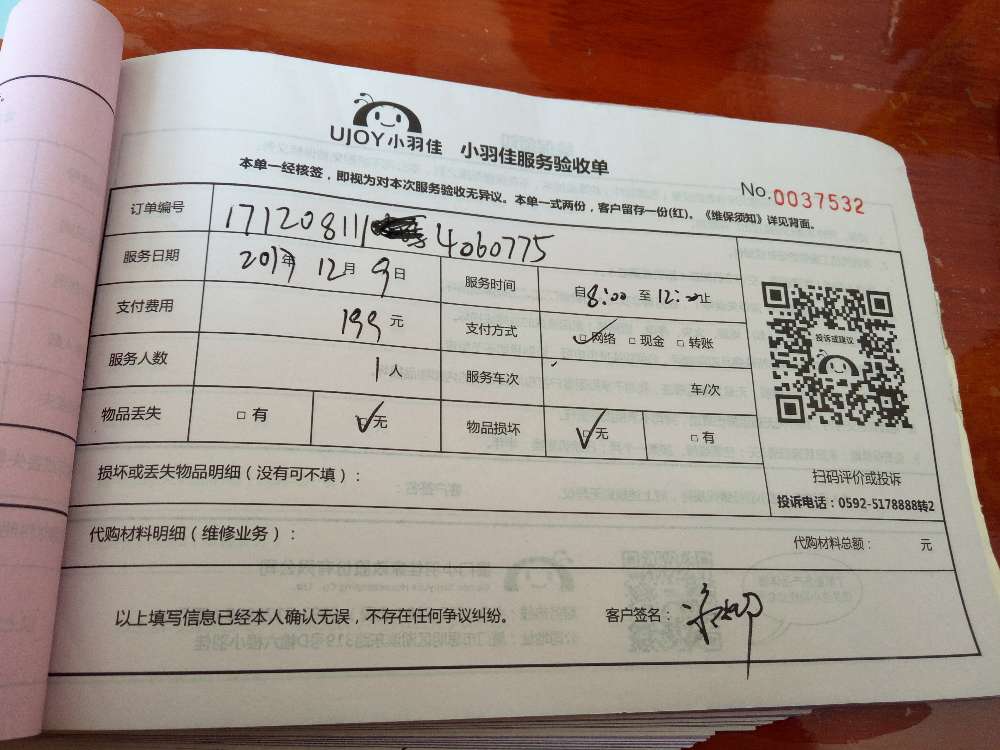 UJOY小羽佳 小羽佳服务验收单
No.0037532
本单一经核签，即视为对本次服务验收无异议。本单一式两份，客户留存一份(红)。《维保须知》详见背面。
订单编号 171208111 4060775
服务日期 2017年 12月 9日 服务时间 自8:00 至 12:00止
支付费用 199 元 支付方式 ☑网络 □现金 □转账
服务人数 1人 服务车次 车/次
物品丢失 □有 ☑无 物品损坏 ☑无 □有
投诉或建议
扫码评价或投诉
投诉电话：0592-5178888转2
损坏或丢失物品明细（没有可不填）：
代购材料明细（维修业务）： 代购材料总额： 元
以上填写信息已经本人确认无误，不存在任何争议纠纷。 客户签名：